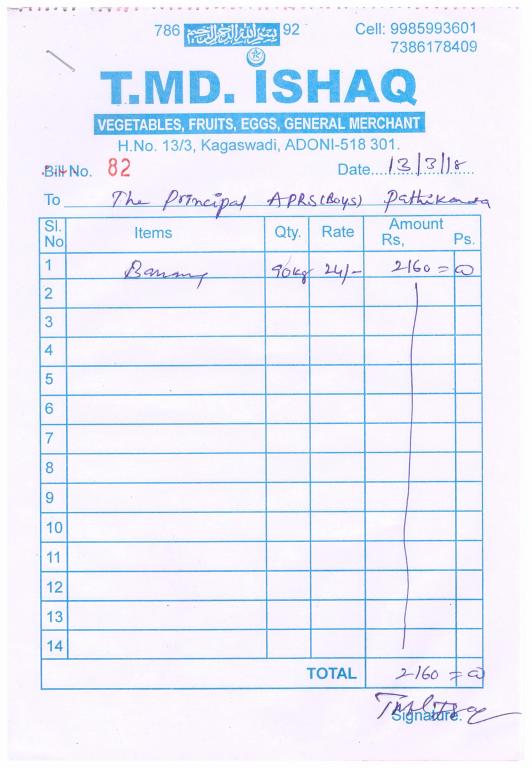 786 بسم الله الرحمن الرحيم 92
Cell: 9985993601
7386178409
T.MD. ISHAQ
VEGETABLES, FRUITS, EGGS, GENERAL MERCHANT
H.No. 13/3, Kagaswadi, ADONI-518 301.
Bill No. 82 Date....13/3/18....
To The Principal APRS(Boys) Pathikonda
Sl. No Items Qty. Rate Amount Rs, Ps.
1 Banana 90kg 24/- 2160 = 00
2
3
4
5
6
7
8
9
10
11
12
13
14
TOTAL 2160 = 00
Signature.